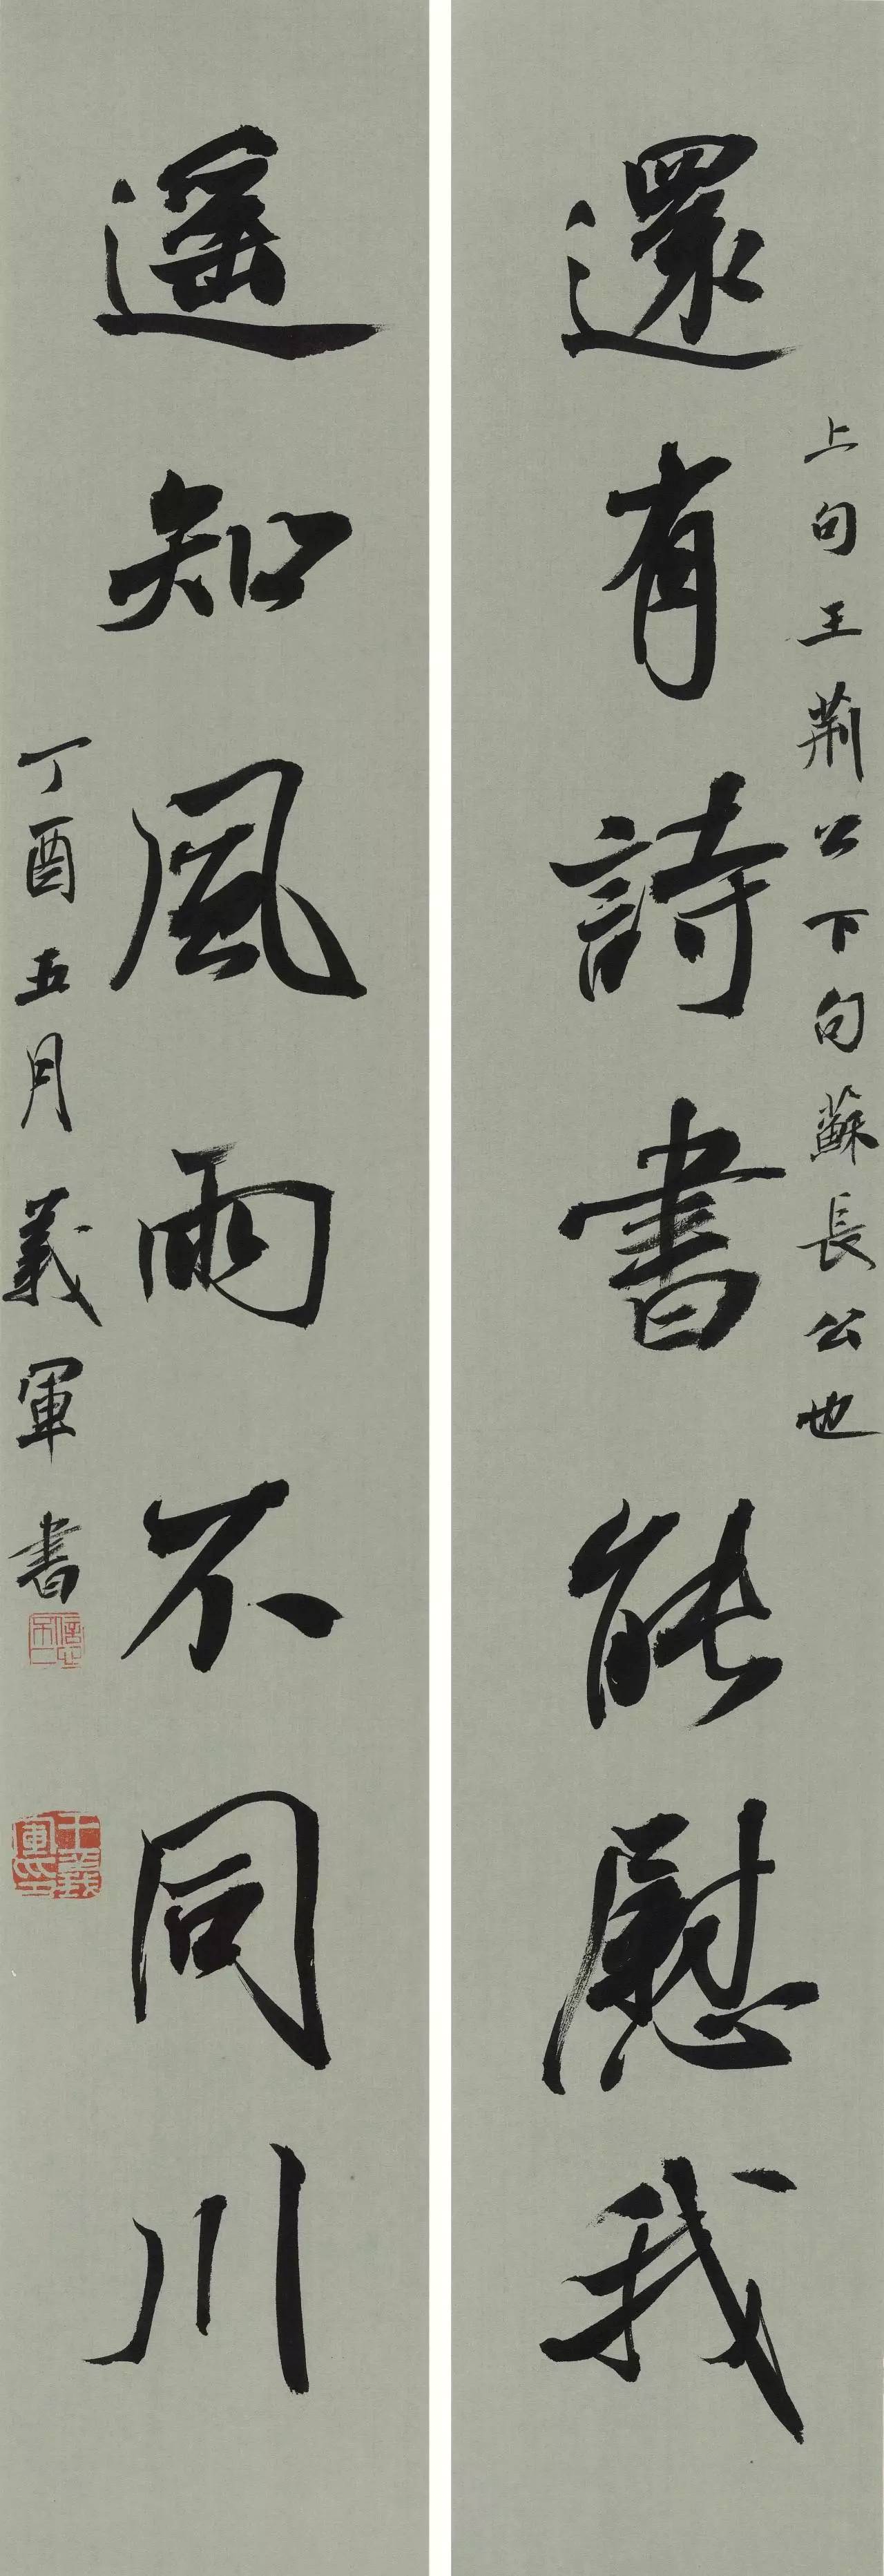 還有詩書能慰我
上句王荊公下句蘇長公也
遥知風雨不同川
丁酉五月義軍書
王義軍印